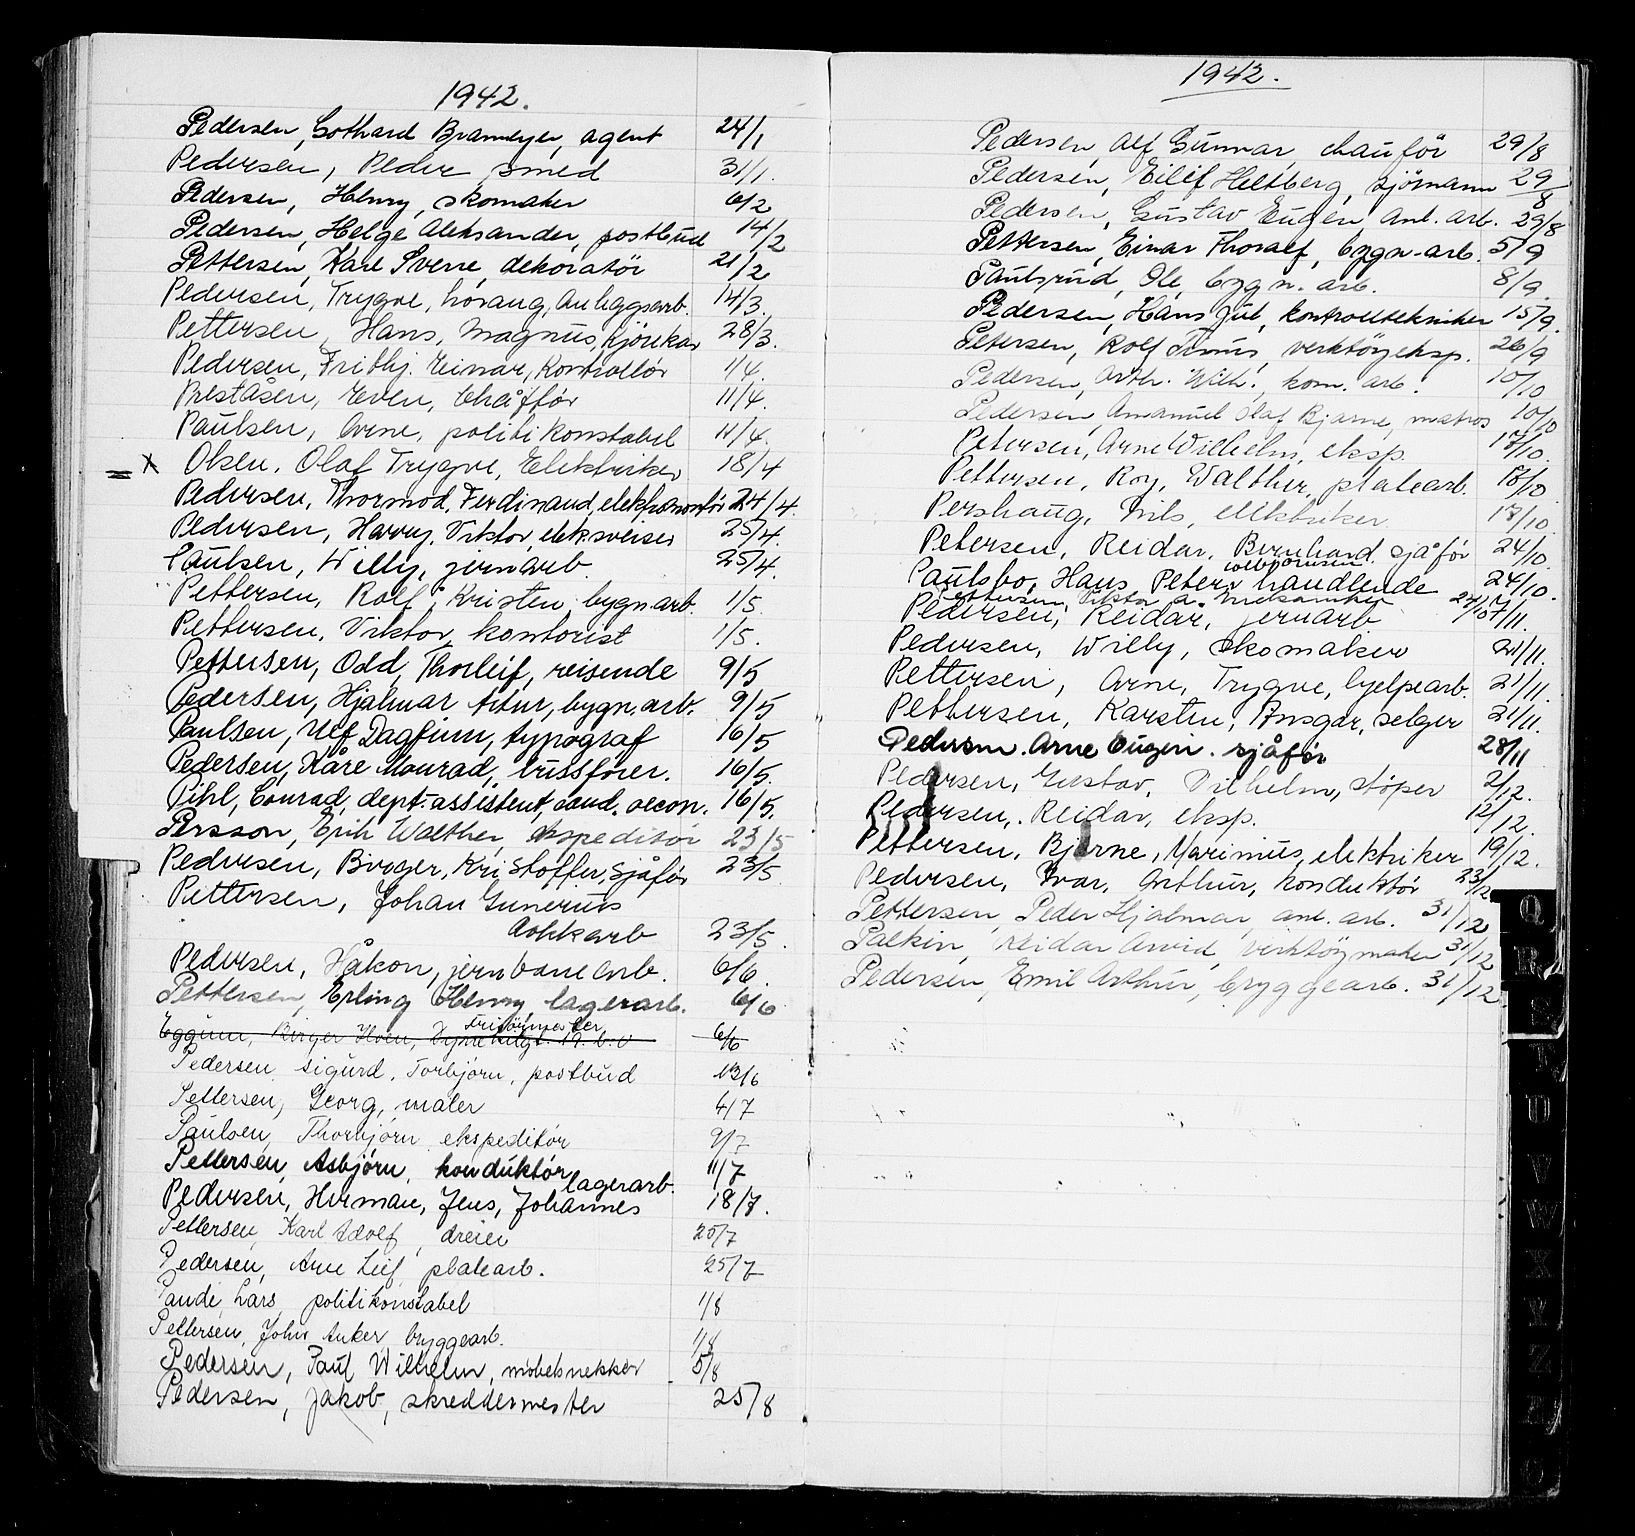 1942.
Pedersen, Gothard Bramejer, agent 24/1
Pedersen, Peder, smed 31/1.
Pedersen, Henry, skomaker 6/2
Pedersen, Helge Aleksander, postbud 14/2
Pettersen, Kåre Sverre, dekoratör 21/2
Pedersen, Trygve, Anleggsarb. 14/3.
Pettersen, Hans, Magnus, kjörekar 28/3.
Pedersen, Frithj. Einar, Kontrollör 1/4.
Preståsen, Even, Chafför 11/4.
Paulsen, Arne, politikonstabel 11/4.
= X Olsen, Olaf Trygve, Elektriker 18/4
Pedersen, Thormod, Ferdinand, elektromontör 24/4.
Pedersen, Harry, Viktor, eleksveiser 25/4.
Paulsen, Willy, jernarb. 25/4.
Pettersen, Rolf, Kristen, bygn.arb. 1/5.
Pettersen, Viktor, kontorist 1/5.
Pettersen, Odd, Thorleif, reisende 9/5
Pedersen, Hjalmar Artur, bygn.arb. 9/5
Paulsen, Ulf Dagfinn, typograf 16/5
Pedersen, Kåre Monrad, bussfører. 16/5.
Pihl, Conrad, dept. assistent, cand. oecon. 16/5.
Persson, Erik Walther, ekspeditör 23/5
Pedersen, Birger, Kristoffer, Sjåför 23/5
Pettersen, Johan Gunerius
23/5.
Pedersen, Håkon, jernbanearb. 6/6.
Pettersen, Erling Henry, lagerarb. 6/6
frisørmester
Eggum, Birger 6/6
Pedersen, Sigurd, Torbjörn, postbud 13/6
Pettersen, Georg, maler 4/7
Paulsen, Thorbjörn, ekspeditör 9/7
Pettersen, Asbjörn, konduktör 11/7
lagerarb.
Pedersen, Herman, Jens, Johannes 18/7.
Pettersen, Karl Adolf, dreier 25/7
Pedersen, Arne Leif, platearb. 25/7
Paude, Lars, politikonstabel 1/8
Pettersen, John Anker, bryggearb. 1/8
Pedersen, Paul Wilhelm, möbelsnekker 5/8
Pedersen, Jakob, skreddermester 25/8
1942.
Pedersen, Alf Gunnar, chauför 29/8
Pedersen, Eilif Heltberg, sjömann 29/8
Pedersen, Gustav Eugen, anl. arb. 29/8
Pettersen, Einar Thoralf, bygn-arb. 5/9
Paulsrud, Ole, bygn. arb. 8/9.
Pedersen, Hans Jul, kontrolltekniker 15/9.
Petersen, Rolf, verktöyeksp. 26/9
Pedersen, Arth. Wilh., kom. arb. 10/10
Pedersen, Amanuel Olaf Bjarne, matros 10/10
Petersen, Arne Wilhelm, eksp. 17/10.
Pettersen, Roy, Walther, platearb. 18/10
Pershaug, Nils, elektriker 17/10.
Petersen, Reidar, Bernhard, sjåför 24/10.
Paulsbo, Hans Peter, handlende 24/10.
Pettersen, Viktor A. 24/10
Pedersen, Reidar, jernarb 7/11.
Pedersen, Willy, skomaker 21/11.
Pettersen, Arne, Trygve, hjelpearb. 21/11.
Pettersen, Karsten, Ansgar, selger 21/11.
Pedersen, Arne Eugen, sjåför 28/11
Pedersen, Gustav, Vilhelm, stöper 2/12.
Pedersen, Reidar, eksp. 12/12.
Pettersen, Bjarne, Marinius, elektriker 19/12.
Pedersen, Ivar, Arthur, konduktör 23/12
Pettersen, Peder Hjalmar, anl. arb. 31/12
Palkin, Reidar Arvid, verktöymaker 31/12
Pedersen, Emil Arthur, bryggearb. 31/12
Q
R
S
T
U
V
W
X
Y
Z
Æ
Ø